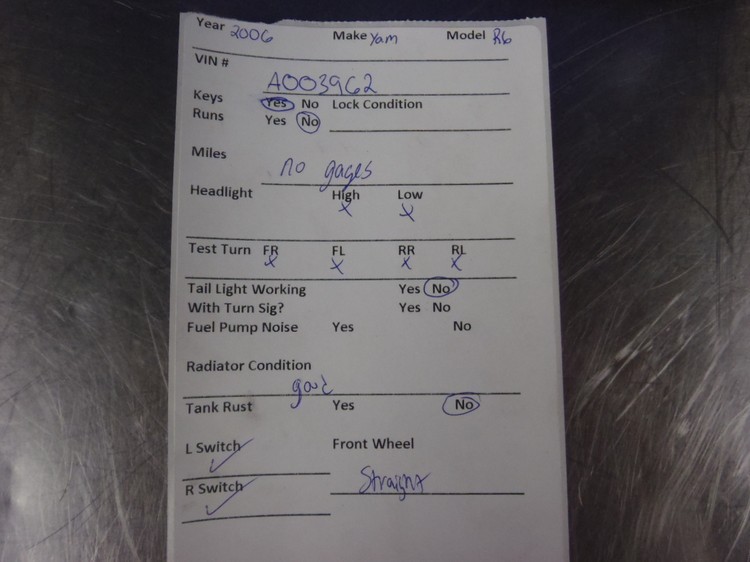 Year 2006 Make Yam Model R6
VIN #
A003962
Keys Yes No Lock Condition
Runs Yes No
Miles no gages
Headlight High Low
X X
Test Turn FR FL RR RL
X X X X
Tail Light Working Yes No
With Turn Sig? Yes No
Fuel Pump Noise Yes No
Radiator Condition
good
Tank Rust Yes No
L Switch ✓ Front Wheel
R Switch ✓ Straight